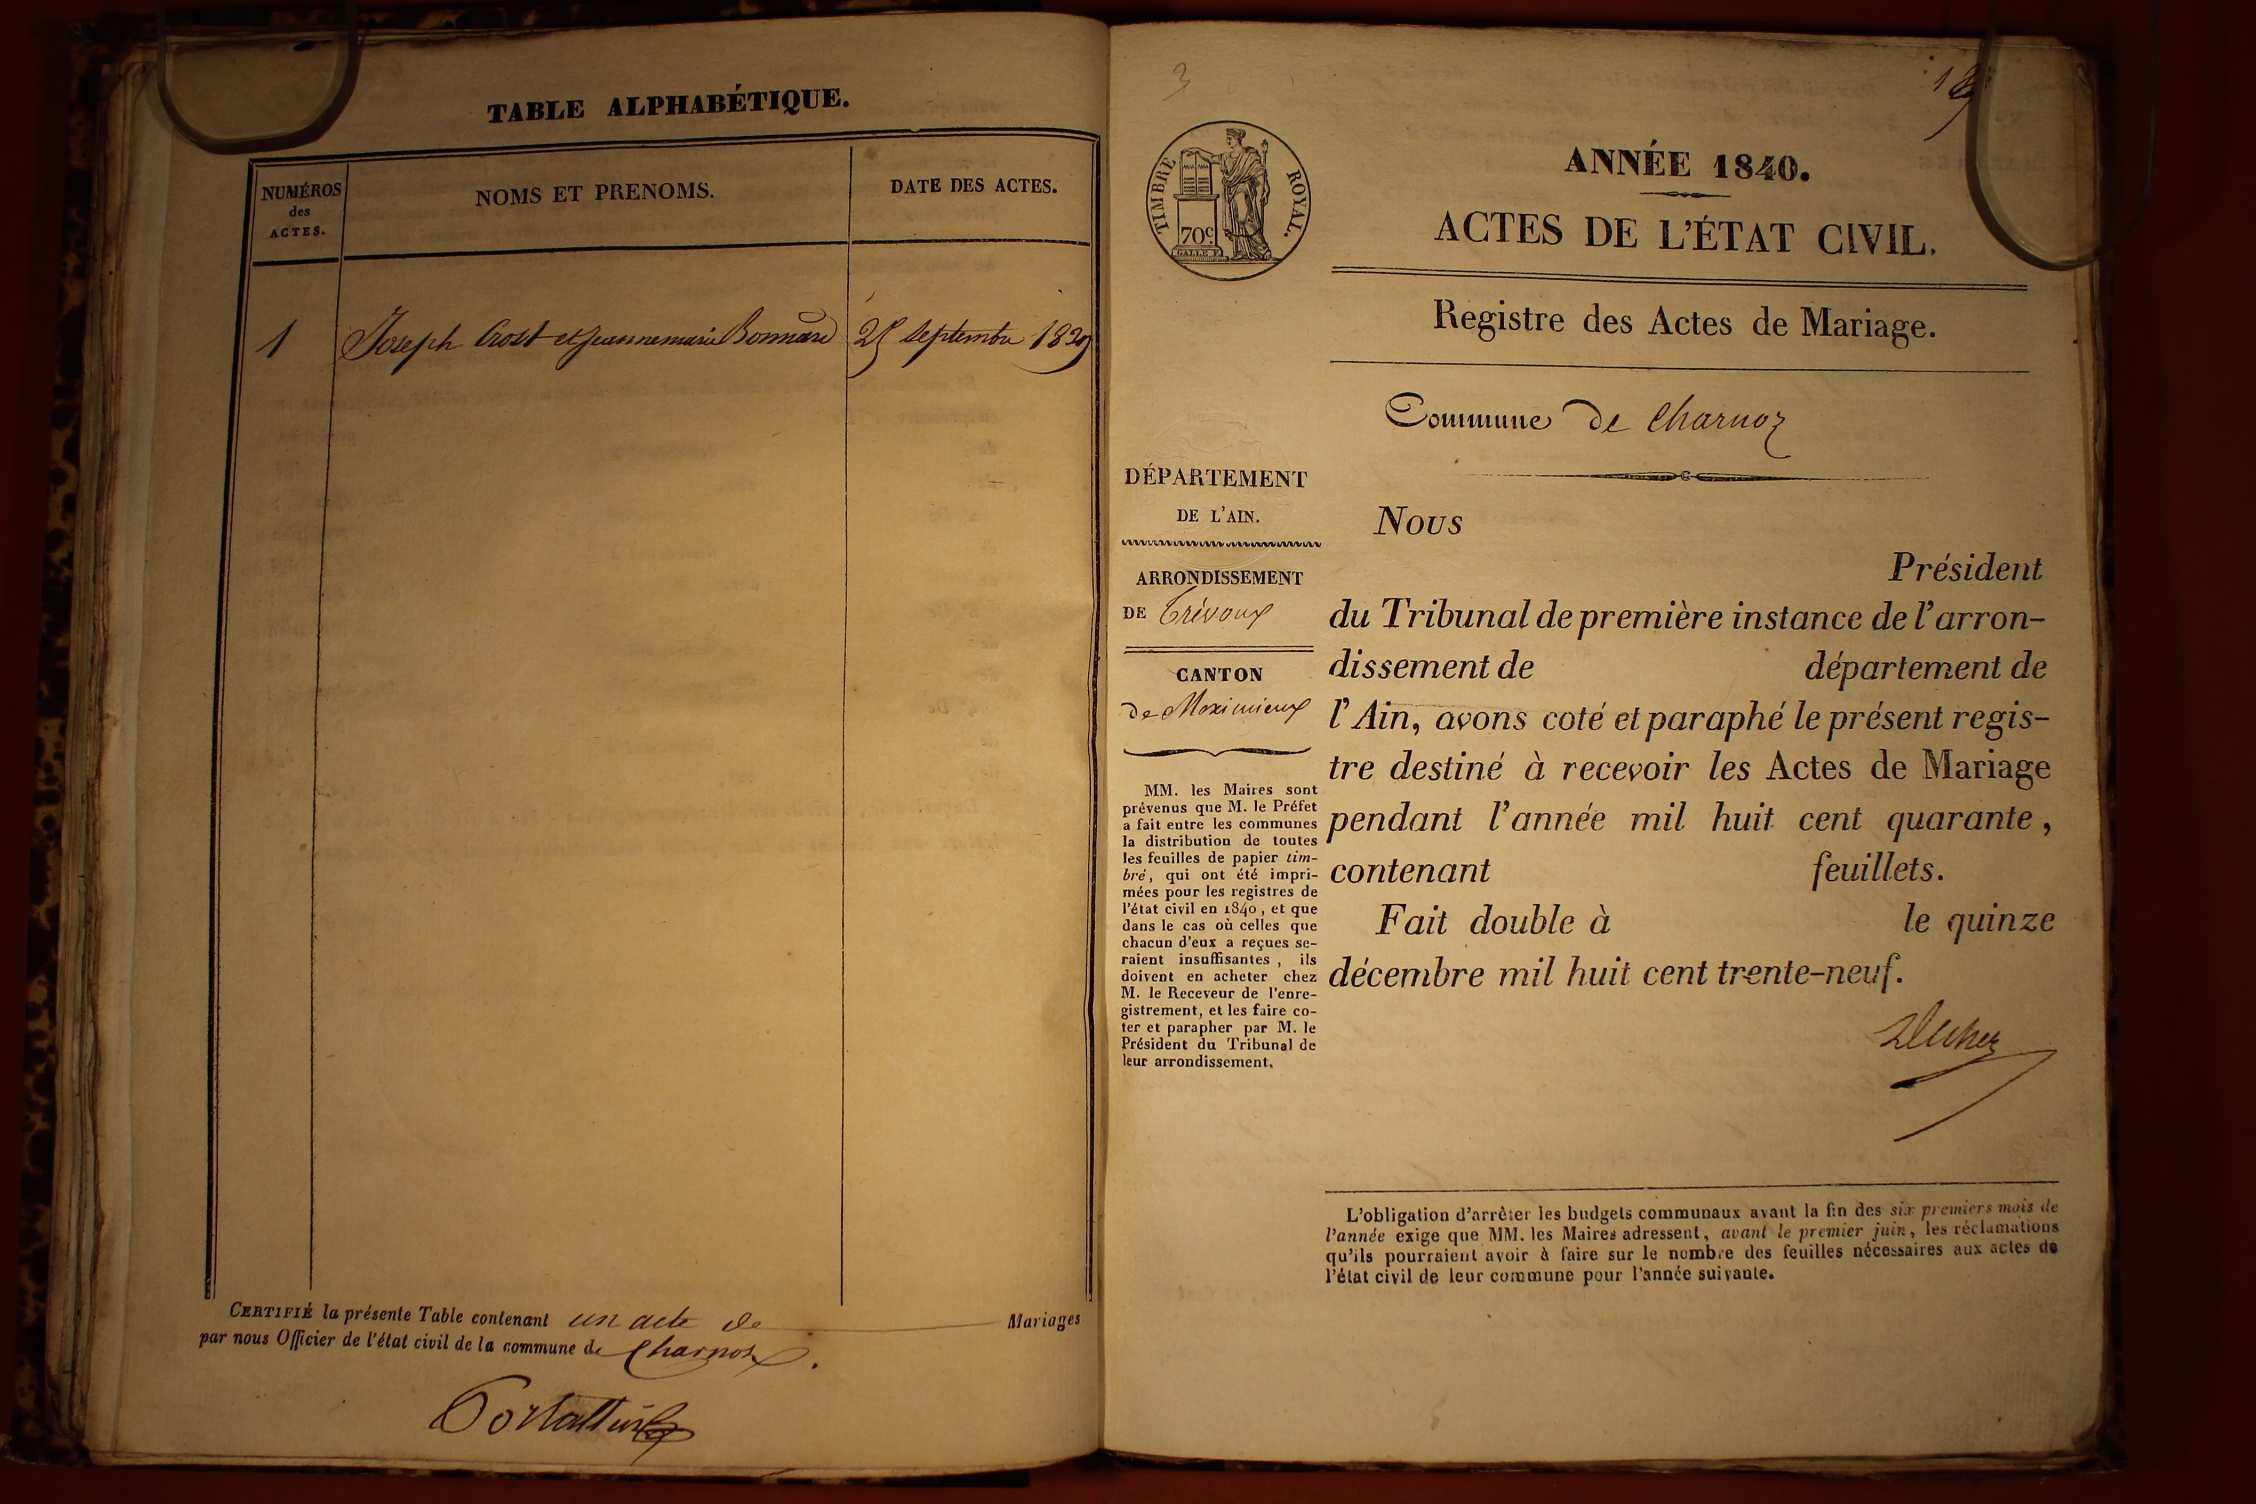 TABLE ALPHABÉTIQUE.
NUMÉROS
des
ACTES.
NOMS ET PRENOMS.
DATE DES ACTES.
1 Joseph Crost et Jeannemarie Bonnard 25 septembre 1839
CERTIFIÉ la présente Table contenant un acte de Mariages
par nous Officier de l'état civil de la commune de Charnoz.
3
TIMBRE ROYAL.
70c
GALLE F.
ANNÉE 1840.
ACTES DE L'ÉTAT CIVIL.
Registre des Actes de Mariage.
Commune de Charnoz
DÉPARTEMENT
DE L'AIN.
ARRONDISSEMENT
DE Trévoux
CANTON
de Meximieux
MM. les Maires sont
prévenus que M. le Préfet
a fait entre les communes
la distribution de toutes
les feuilles de papier tim-
bré, qui ont été impri-
mées pour les registres de
l'état civil en 1840, et que
dans le cas où celles que
chacun d'eux a reçues se-
raient insuffisantes, ils
doivent en acheter chez
M. le Receveur de l'enre-
gistrement, et les faire co-
ter et parapher par M. le
Président du Tribunal de
leur arrondissement.
Nous
Président
du Tribunal de première instance de l'arron-
dissement de département de
l'Ain, avons coté et paraphé le présent regis-
tre destiné à recevoir les Actes de Mariage
pendant l'année mil huit cent quarante,
contenant feuillets.
Fait double à le quinze
décembre mil huit cent trente-neuf.
L'obligation d'arrêter les budgets communaux avant la fin des six premiers mois de
l'année exige que MM. les Maires adressent, avant le premier juin, les réclamations
qu'ils pourraient avoir à faire sur le nombre des feuilles nécessaires aux actes de
l'état civil de leur commune pour l'année suivante.